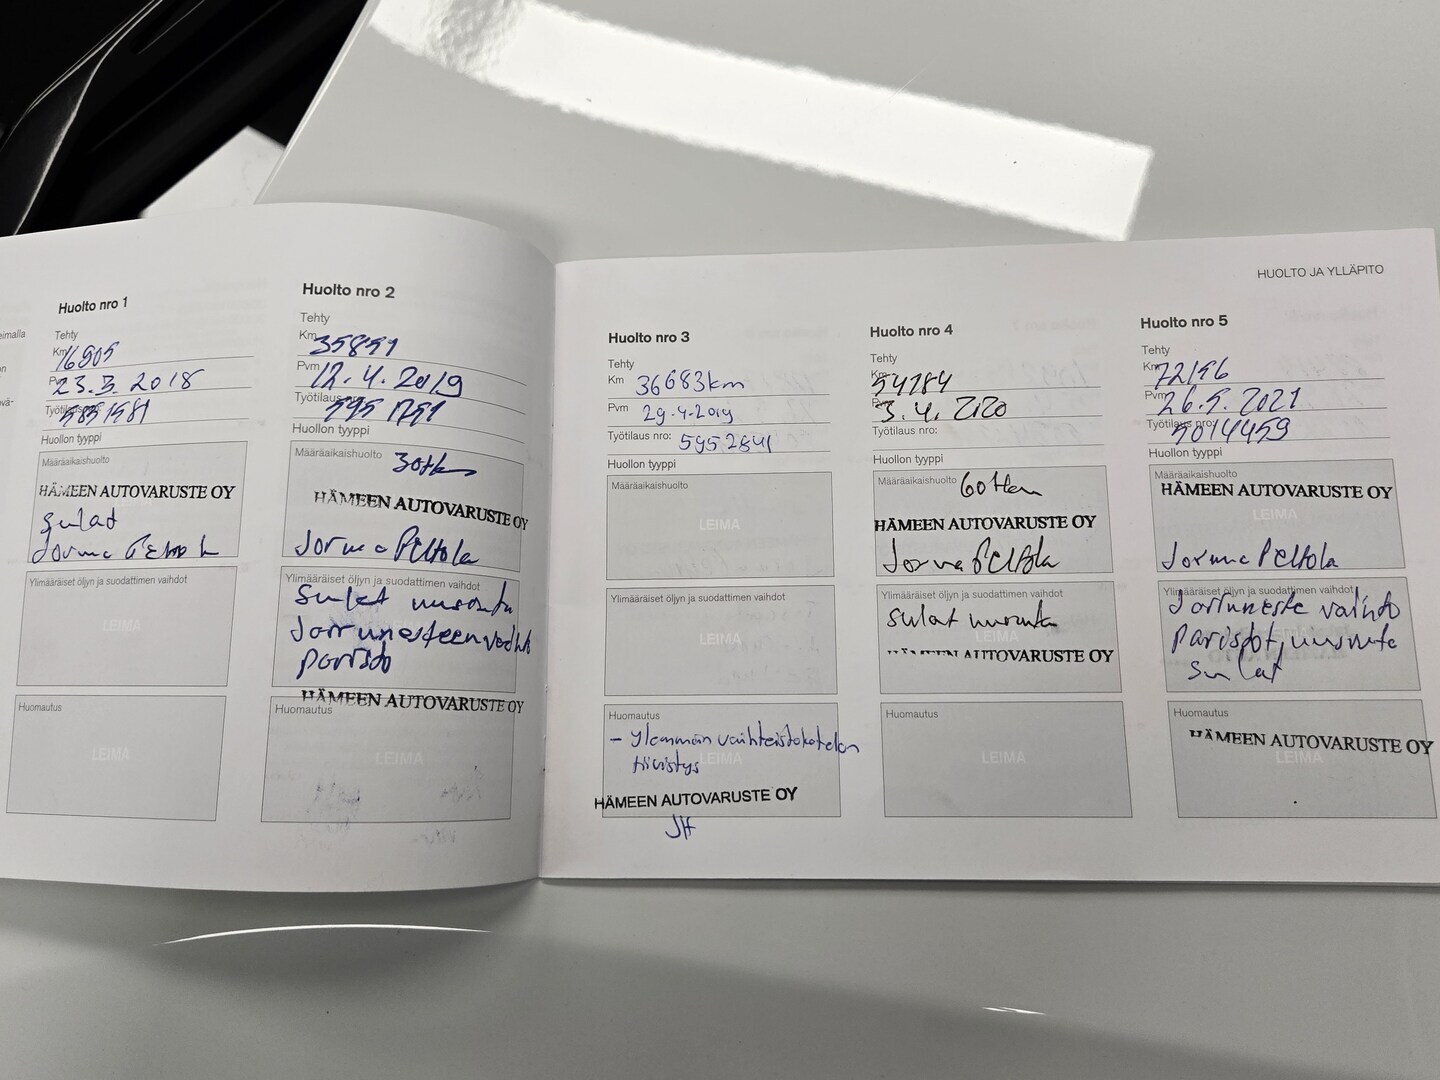 HUOLTO JA YLLÄPITO
Huolto nro 1
Tehty
Km 16505
Pvm 23.3.2018
Työtilaus nro:
Huollon tyyppi
Määräaikaishuolto
HÄMEEN AUTOVARUSTE OY
sulat
Jorma
Ylimääräiset öljyn ja suodattimen vaihdot
LEIMA
Huomautus
LEIMA
Huolto nro 2
Tehty
Km 35851
Pvm 12.4.2019
Työtilaus nro: 5951751
Huollon tyyppi
Määräaikaishuolto
HÄMEEN AUTOVARUSTE OY
Jorma Peltola
Ylimääräiset öljyn ja suodattimen vaihdot
sulat uusinta
Jarrunesteen vaihto
paristo
HÄMEEN AUTOVARUSTE OY
Huomautus
LEIMA
Huolto nro 3
Tehty
Km 36683km
Pvm 29.4.2019
Työtilaus nro: 5952841
Huollon tyyppi
Määräaikaishuolto
LEIMA
Ylimääräiset öljyn ja suodattimen vaihdot
LEIMA
Huomautus
- Ylemmän vaihteistokotelon
tiivistys
HÄMEEN AUTOVARUSTE OY
JH
Huolto nro 4
Tehty
Km 54784
Pvm 3.4.2020
Työtilaus nro:
Huollon tyyppi
Määräaikaishuolto
HÄMEEN AUTOVARUSTE OY
Jorma Peltola
Ylimääräiset öljyn ja suodattimen vaihdot
sulat uusinta
LEIMA
HÄMEEN AUTOVARUSTE OY
Huomautus
LEIMA
Huolto nro 5
Tehty
Km 72196
Pvm 26.5.2021
Työtilaus nro: 5014459
Huollon tyyppi
Määräaikaishuolto
HÄMEEN AUTOVARUSTE OY
LEIMA
Jorma Peltola
Ylimääräiset öljyn ja suodattimen vaihdot
Jarruneste vaihto
paristot, uusinta
sulat
Huomautus
HÄMEEN AUTOVARUSTE OY
LEIMA